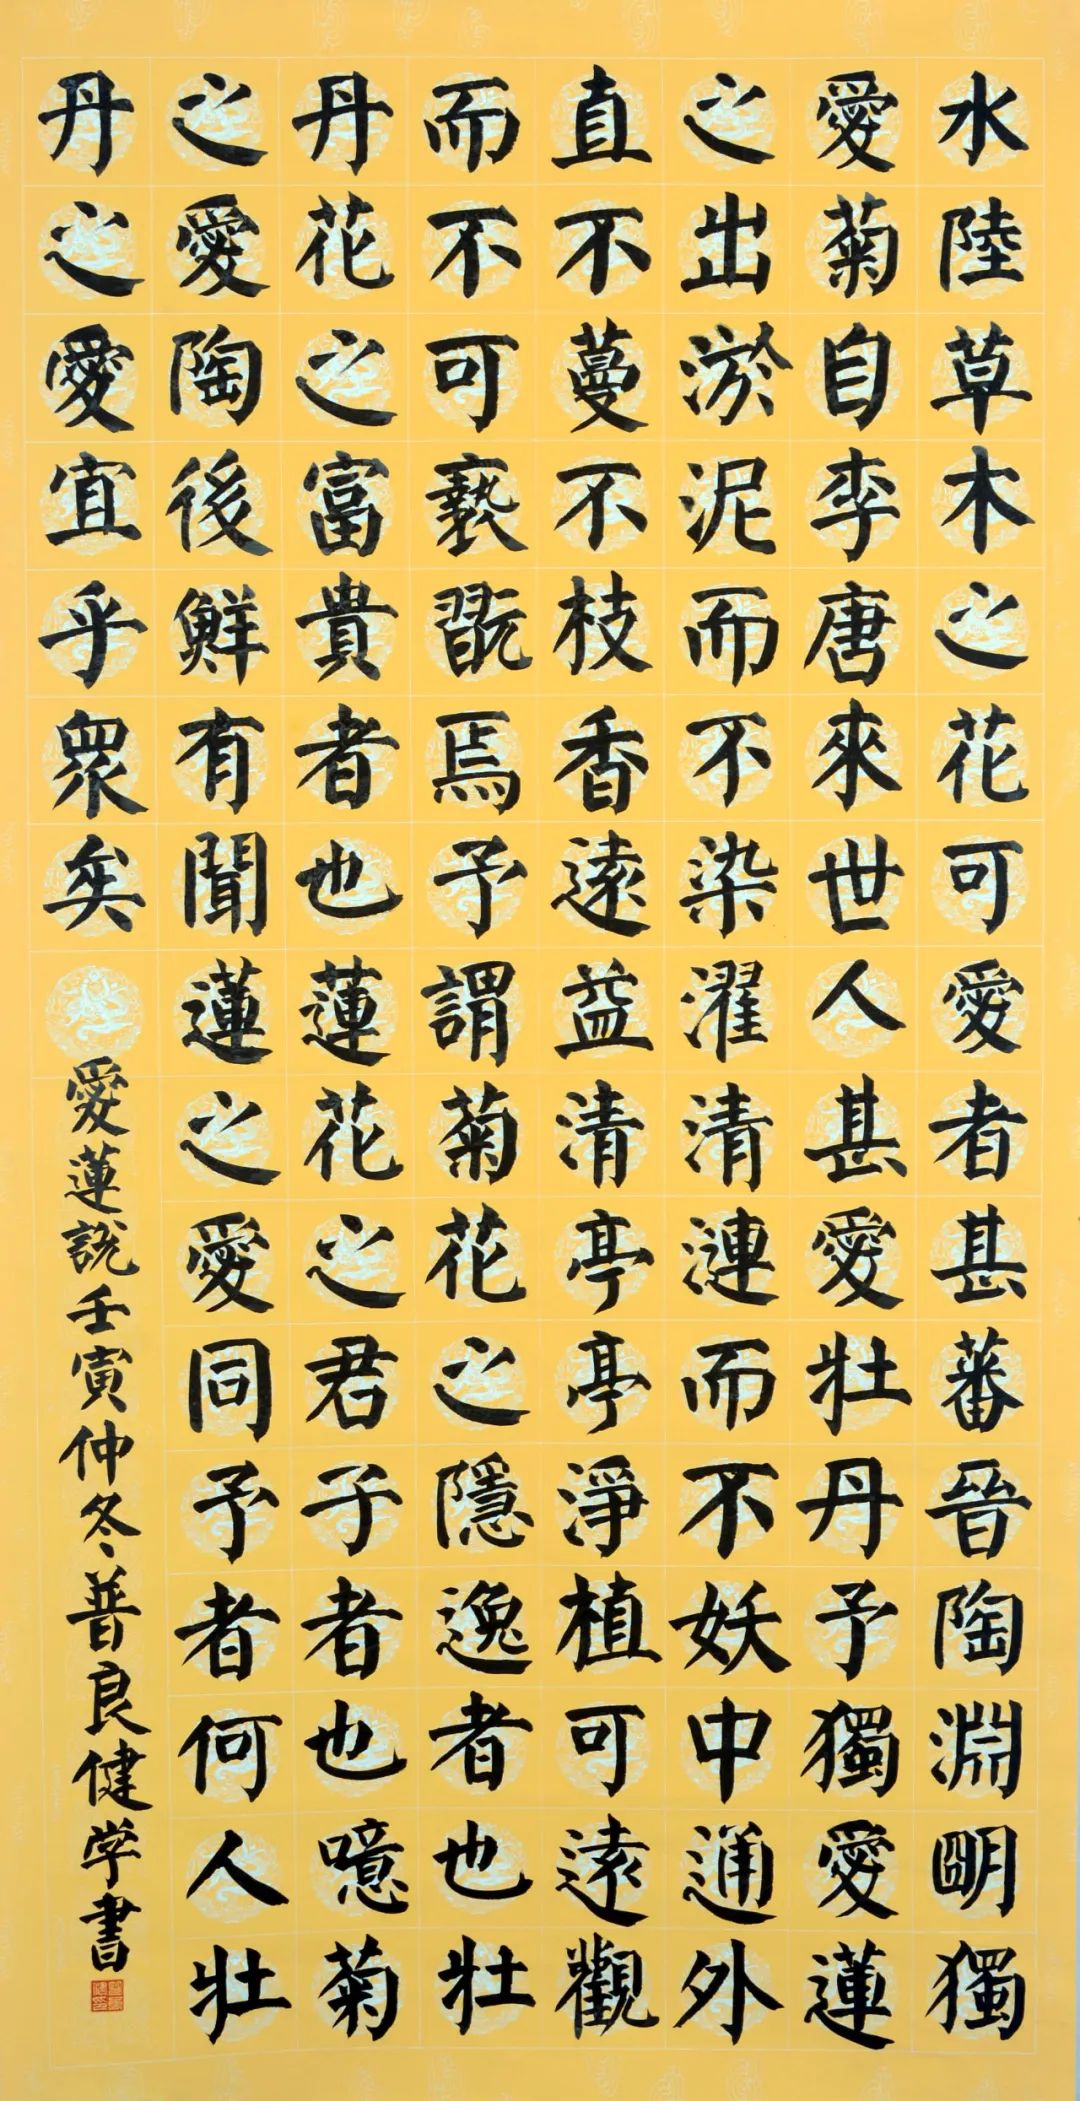 水陸草木之花可愛者甚蕃晉陶淵明獨
愛菊自李唐來世人甚愛牡丹予獨愛蓮
之出淤泥而不染濯清漣而不妖中通外
直不蔓不枝香遠益清亭亭淨植可遠觀
而不可褻翫焉予謂菊花之隱逸者也牡
丹花之富貴者也蓮花之君子者也噫菊
之愛陶後鮮有聞蓮之愛同予者何人牡
丹之愛宜乎眾矣
愛蓮說壬寅仲冬普良健学書